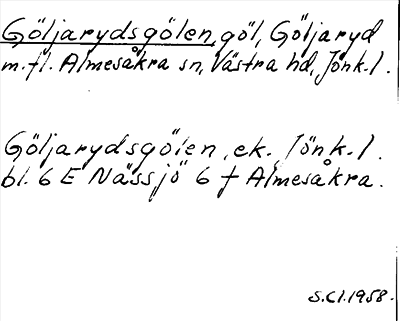 Göljarydsgölen, göl, Göljaryd
m.fl. Almesåkra sn, Västra hd, Jönk. l.
Göljarydsgölen, ek. Jönk. l.
bl. 6 E Nässjö 6 f Almesåkra.
S.Cl. 1958.